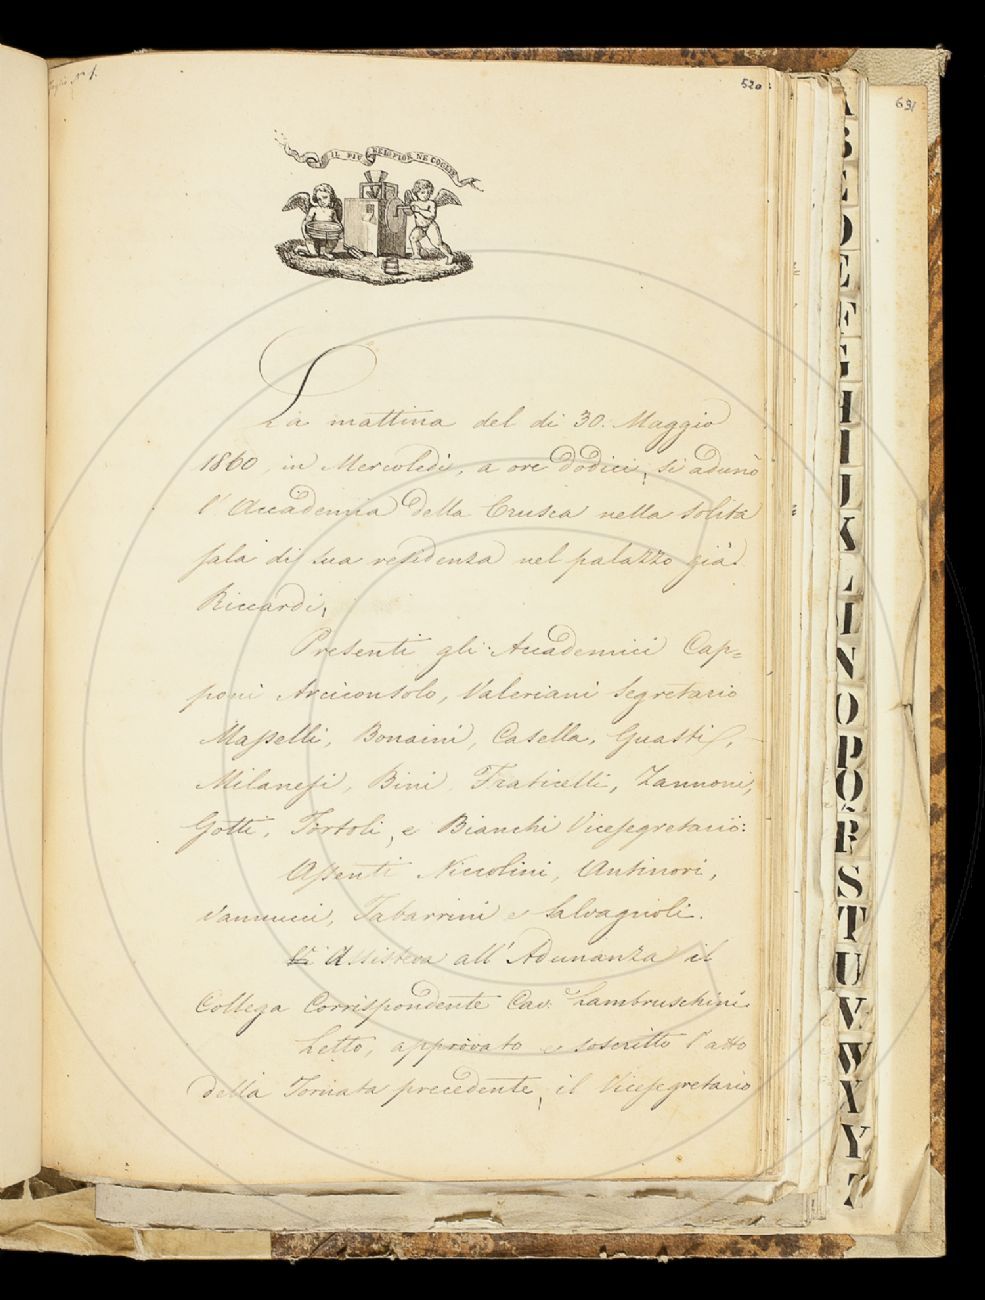 Foglio N° 1.
520
691
IL PIÙ BEL FIOR NE COGLIE
La mattina del di 30. Maggio
1860, in Mercoledì, a ore dodici, si adunò
l'Accademia della Crusca nella solita
sala di sua residenza nel palazzo già
Riccardi,
Presenti gli Accademici Cap=
poni Arciconsolo, Valeriani Segretario
Maselli, Bonaini, Casella, Guasti,
Milanesi, Bini, Fraticelli, Zannoni,
Gotti, Tortoli, e Bianchi Vicesegretario:
Assenti Niccolini, Antinori,
Vannucci, Tabarrini e Salvagnoli.
Assisteva all'Adunanza il
Collega Corrispondente Cav. Lambruschini.
Letto, approvato e soscritto l'atto
della Tornata precedente, il Vicesegretario
A
B
C
D
E
F
G
H
I
J
K
L
M
N
O
P
Q
R
S
T
U
V
W
X
Y
Z